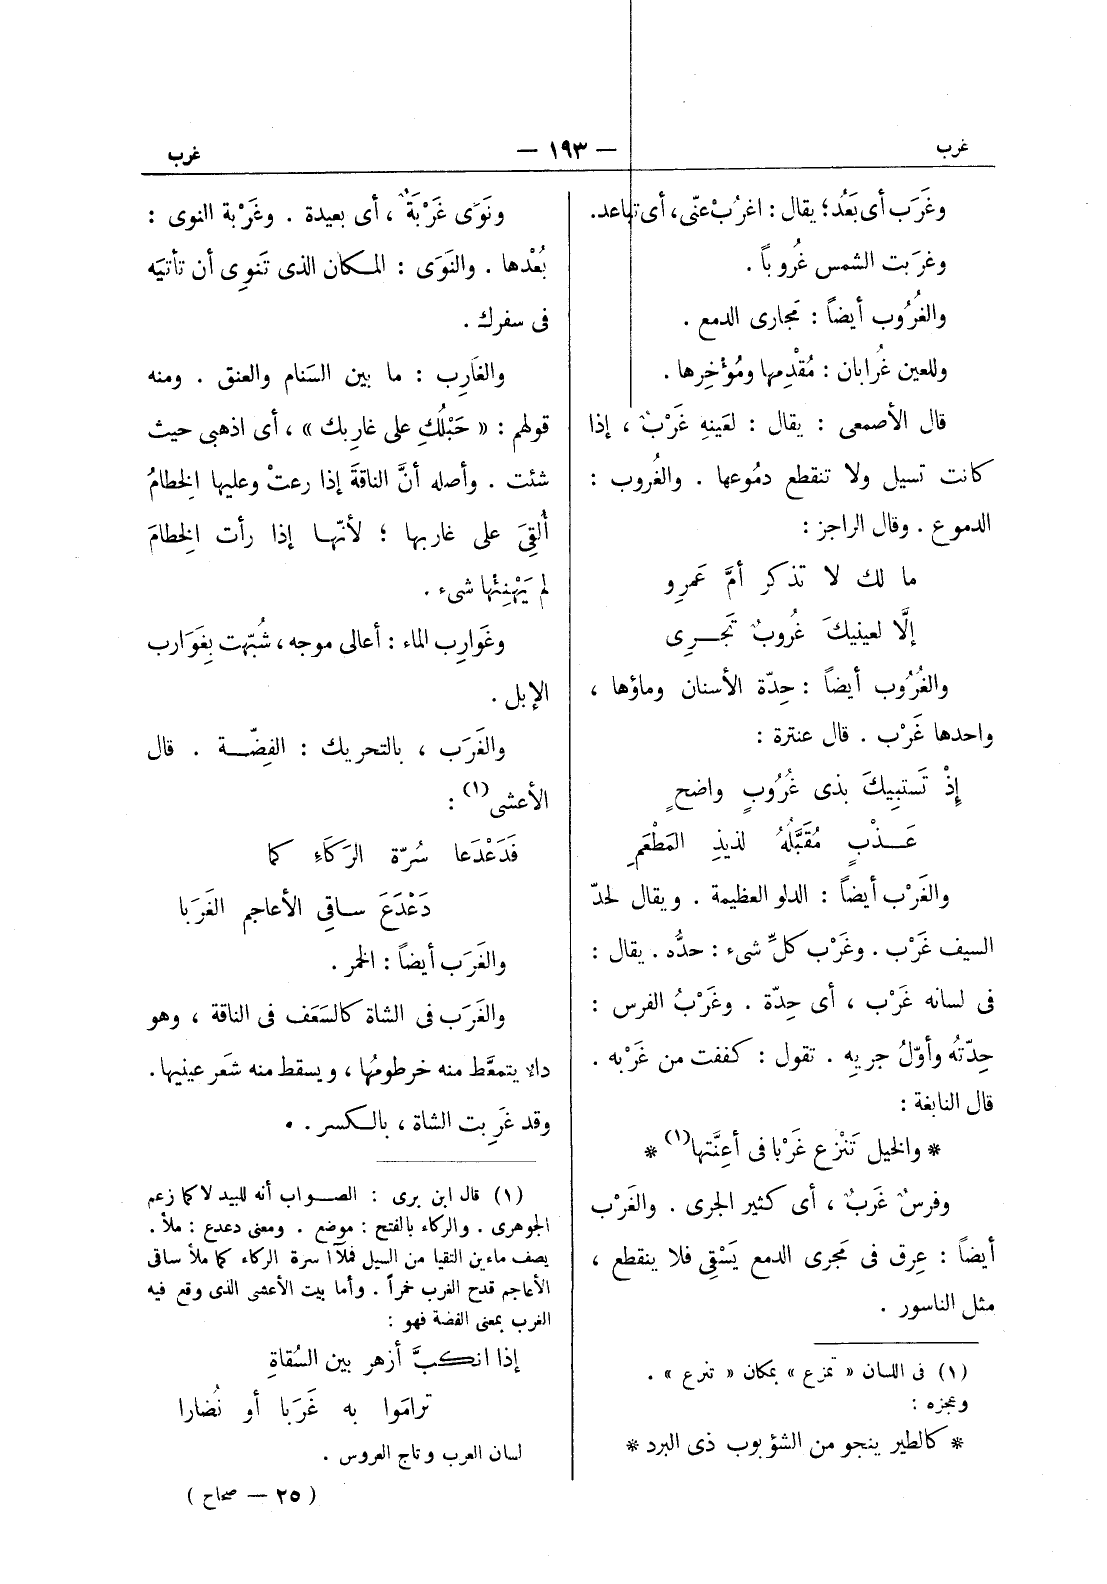 غرب
— ١٩٣ —
غرب
وغَرَب أى بَعُد؛ يقال : اغرُبْ عنّى، أى تباعد.
وغربت الشمس غُروباً .
والغُرُوب أيضاً : مَجارى الدمع .
وللعين غُرابان : مُقْدِمها ومُؤْخِرها .
قال الأصمعى : يقال : لعَينهِ غَرْبٌ ، إذا
كانت تسيل ولا تنقطع دمُوعها . والغُروب :
الدموع . وقال الراجز :
ما لك لا تذكر أمَّ عَمرِو
إلَّا لعينيكَ غُروبٌ تَجـرِى
والغُرُوب أيضاً : حِدّة الأسنان وماؤها ،
واحدها غَرْب . قال عنترة :
إذْ تَستبِيكَ بذى غُرُوبٍ واضحٍ
عَـذْبٍ مُقَبَّلُهُ لذيذِ المَطْعَمِ
والغَرْب أيضاً : الدلو العظيمة . ويقال لحدّ
السيف غَرْب . وغَرْب كلِّ شىء : حدُّه . يقال :
فى لسانه غَرْب ، أى حِدّة . وغَرْبُ الفرس :
حِدّتُه وأوّلُ جريِه . تقول : كففت من غَرْبه .
قال النابغة :
* والخيل تَنْزع غَرْبا فى أعِنَّتها(١) *
وفرسٌ غَربٌ ، أى كثير الجرى . والغَرْب
أيضاً : عِرق فى مَجرى الدمع يَسْقِى فلا ينقطع ،
مثل الناسور .
(١) فى اللسان « تمزع » بمكان « تنزع » .
وعجزه :
* كالطير ينجو من الشؤبوب ذى البرد *
ونَوًى غَرْبَةٌ ، أى بعيدة . وغَرْبة النوى :
بُعْدها . والنَوَى : المكان الذى تَنوِى أن تأتيَه
فى سفرك .
والغَارِب : ما بين السَنام والعنق . ومنه
قولهم : « حَبْلُكِ على غارِبك » ، أى اذهبى حيث
شئت . وأصله أنَّ الناقةَ إذا رعتْ وعليها الخِطامُ
أُلقِىَ على غاربها ؛ لأنّها إذا رأت الخِطامَ
لم يَهْنِئْها شىء .
وغَوارِب الماء : أعالى موجه ، شُبّهت بِغَوَارب
الإبل .
والغَرَب ، بالتحريك : الفِضّة . قال
الأعشى(١) :
فَدَعْدَعا سُرّة الرَكَاءِ كما
دَعْدَعَ ساقِى الأعاجم الغَرَبا
والغَرَب أيضاً : الخمر .
والغَرَب فى الشاة كالسَعَف فى الناقة ، وهو
داء يتمعَّط منه خرطومُها ، ويسقط منه شَعر عينيها .
وقد غَرِبت الشاة ، بالكسر .
(١) قال ابن برى : الصواب أنه للبيد لا كما زعم
الجوهرى . والركاء بالفتح : موضع . ومعنى دعدع : ملأ .
يصف ماءين التقيا من السيل فملآ سرة الركاء كما ملأ ساقى
الأعاجم قدح الغرب خمراً . وأما بيت الأعشى الذى وقع فيه
الغرب بمعنى الفضة فهو :
إذا انكبَّ أزهر بين السُقاةِ
ترامَوا به غَرَبا أو نُضارا
لسان العرب وتاج العروس .
( ٢٥ — صحاح )